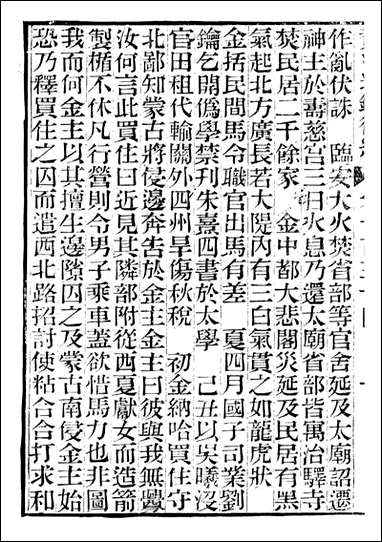 作亂伏誅　臨安大火焚省部等官舍延及太廟詔遷
神主於壽慈宮三日火息乃還太廟省部皆寓治驛寺
焚民居二千餘家　金中都大悲閣災延及民居有黑
氣起北方廣長若大隄內有三白氣貫之如龍虎狀
金括民間馬令職官出馬有差　夏四月國子司業劉
鑰乞開僞學禁刊朱熹四書於太學　己丑以吳曦沒
官田租代輸關外四州旱傷秋稅　初金納哈買住守
北鄙知蒙古將侵邊奔告於金主金主曰彼與我無釁
汝何言此買住曰近見其隣部附從西夏獻女而造箭
製楯不休凡行營則令男子乘車蓋欲惜馬力也非圖
我而何金主以其擅生邊隙囚之及蒙古南侵金主始
恐乃釋買住之囚而遣西北路招討使粘合合打求和